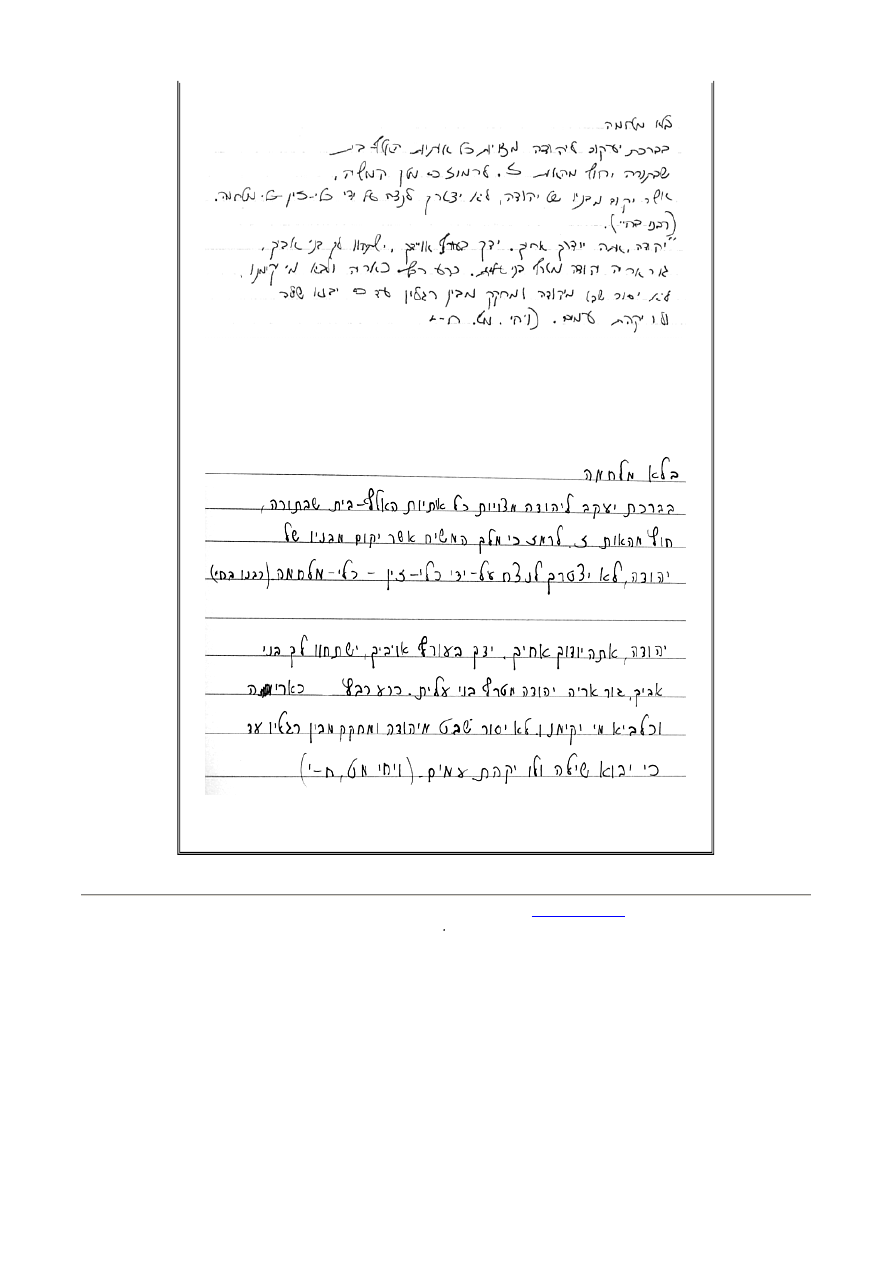 בלא מלחמה
בברכת יעקוב ליהודה מצויות כל אותיות האלף בית
שבתורה חוץ מהאות ז. לרמוז כי מלך המשיח,
אשר יקום מבניו של יהודה, לא יצטרך לנצח על ידי כלי-זין כלי-מלחמה.
(רבנו בחיי).
"יהודה אתה יודוך אחיך. ידך בעורף אויביך, ישתחוו לך בני אביך,
גור אריה יהודה מטרף בני עלית. כרע רבץ כאריה ולביא מי יקימנו,
לא יסור שבט מיהודה ומחקק מבין רגליו עד כי יבוא שילה
ולו יקהת עמים. (ויחי. מט. ח-י
בלא מלחמה
בברכת יעקב ליהודה מצויות כל אותיות האלף-בית שבתורה,
חוץ מהאות ז. לרמז כי מלך המשיח אשר יקום מבניו של
יהודה, לא יצטרך לנצח על-ידי כלי-זין - כלי-מלחמה (רבנו בחיי)
יהודה, אתה יודוך אחיך. ידך בעורף אויביך, ישתחוו לך בני
אביך, גור אריה יהודה מטרף בני עלית. כרע רבץ כאריה
וכלביא מי יקימנו. לא יסור שבט מיהודה ומחקק מבין רגליו עד
כי יבוא שילה ולו יקהת עמים. (ויחי מט, ח-י)